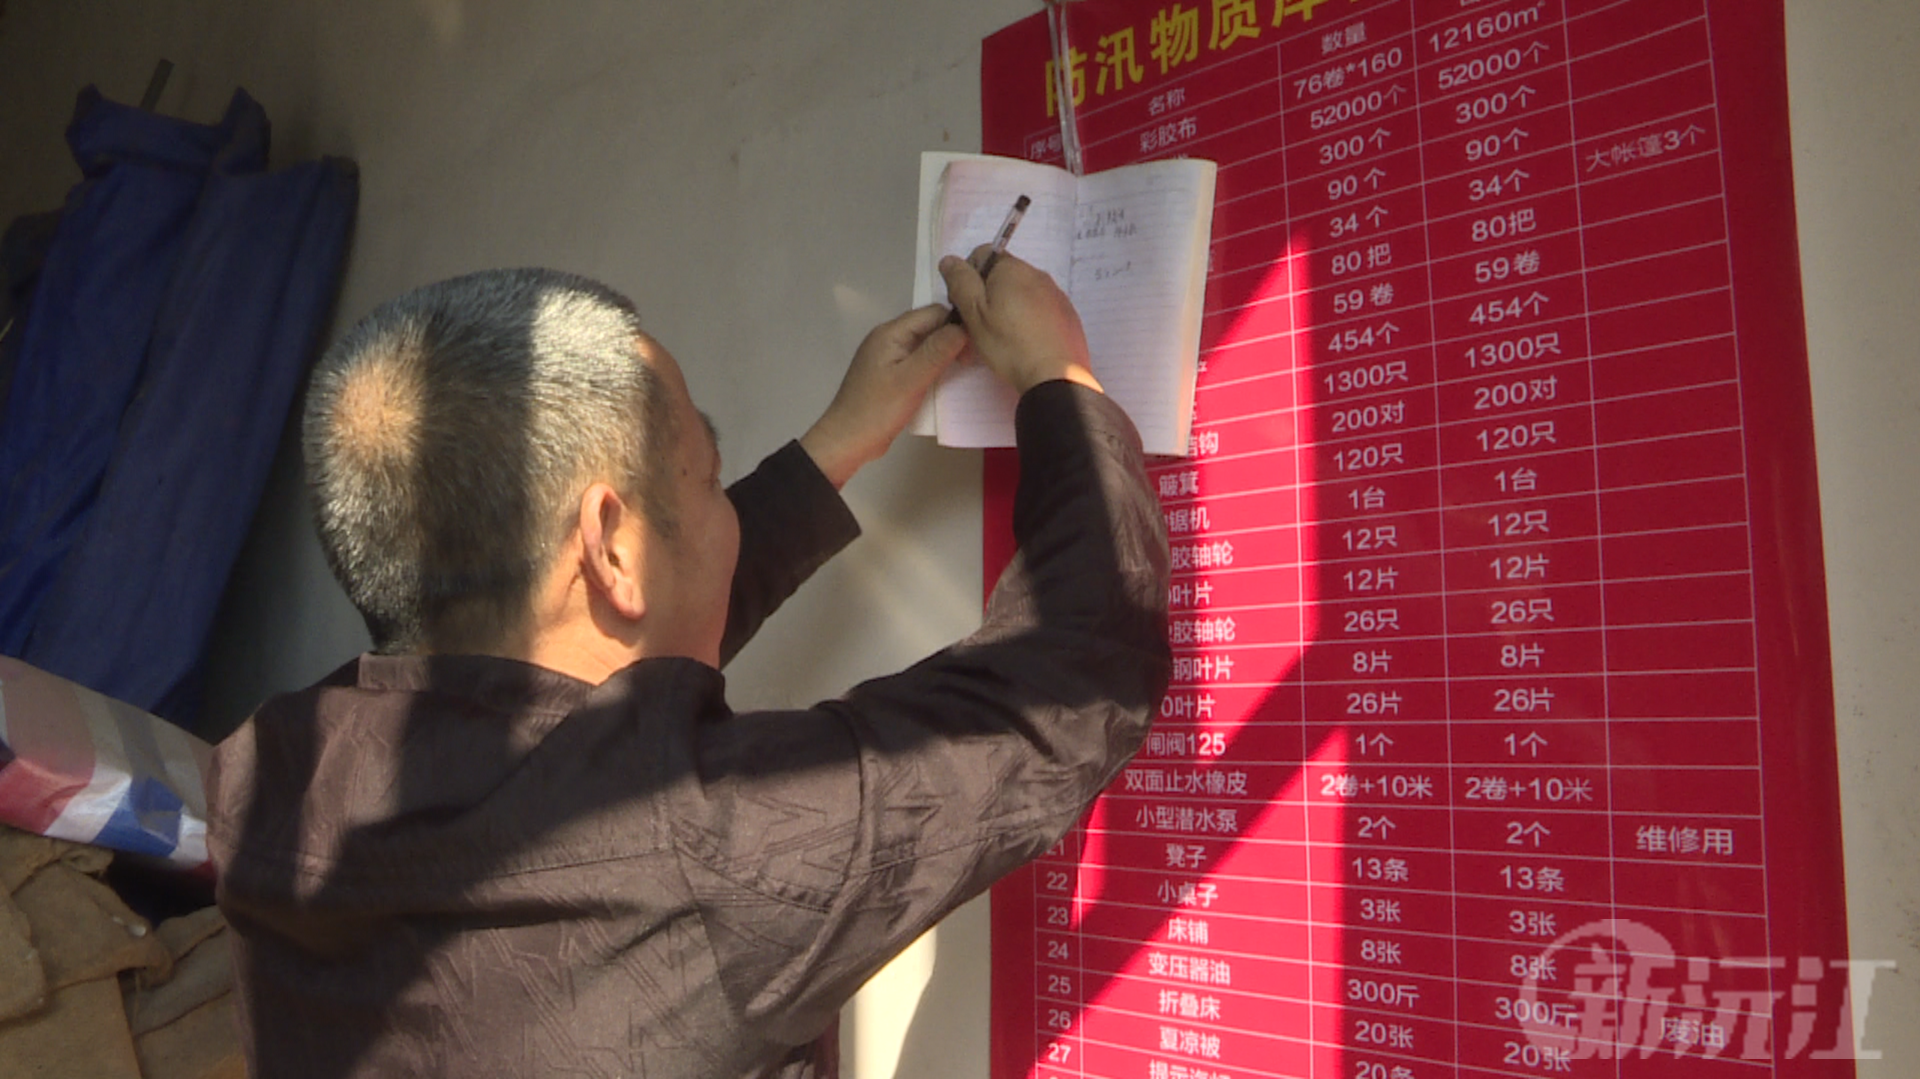 防汛物质库
序号 名称 数量
彩胶布 76卷*160 12160m²
52000个 52000个
300个 300个
90个 90个
34个 34个 大帐篷3个
80把 80把
59卷 59卷
454个 454个
1300只 1300只
钩 200对 200对
簸箕 120只 120只
锯机 1台 1台
胶轴轮 12只 12只
叶片 12片 12片
胶轴轮 26只 26只
钢叶片 8片 8片
0叶片 26片 26片
闸阀125 1个 1个
双面止水橡皮 2卷+10米 2卷+10米
小型潜水泵 2个 2个 维修用
21 凳子 13条 13条
22 小桌子 3张 3张
23 床铺 8张 8张
24 变压器油 300斤 300斤 废油
25 折叠床 20张 20张
26 夏凉被 20条
27
新沅江